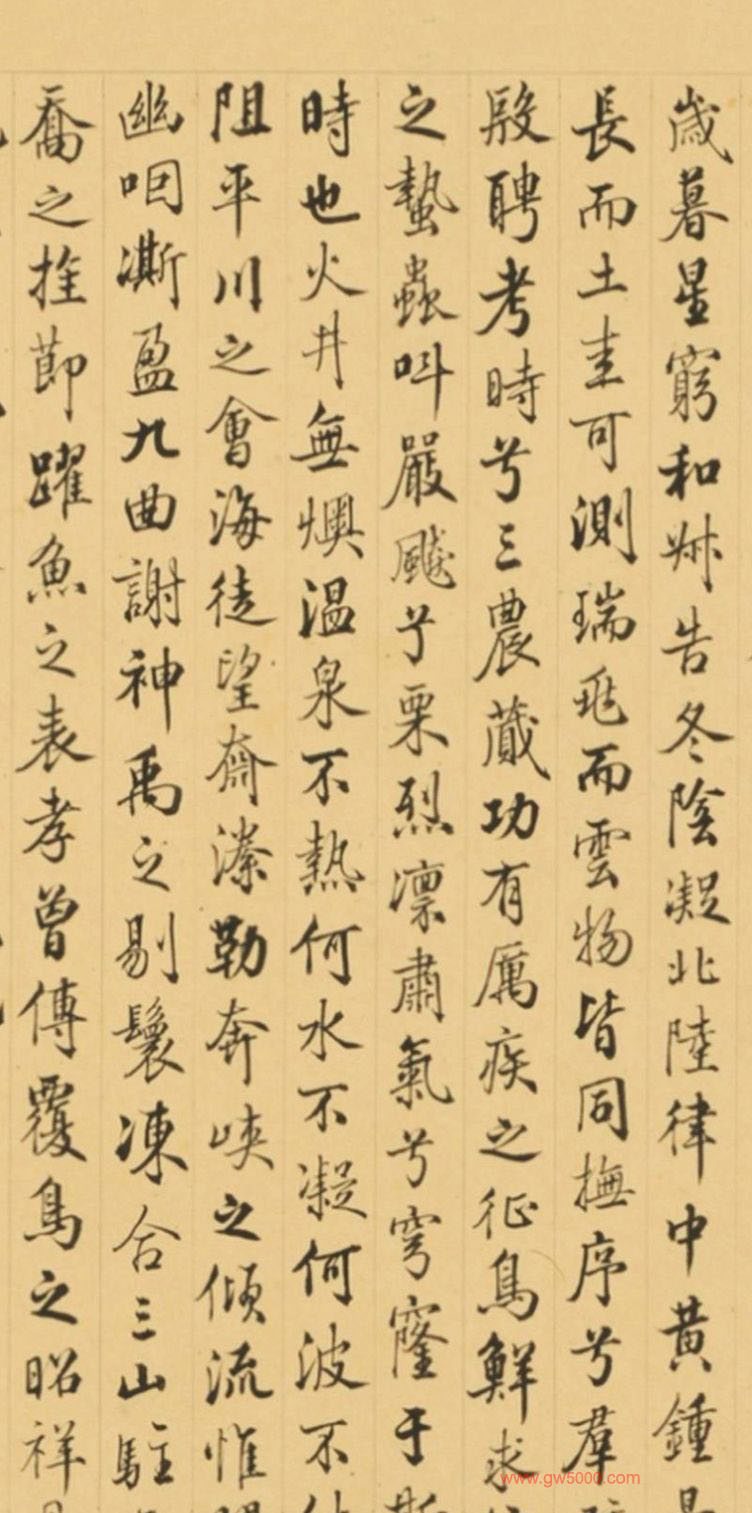 歲暮星窮和叔告冬陰凝北陸律中黃鍾
長而土圭可測瑞飛而雲物皆同撫序兮羣
殷聘考時兮三農蕆功有厲疾之征鳥鮮求
之蟄蟲叫嚴飈兮栗烈凛肅氣兮穹窿于斯
時也火井無燠温泉不熱何水不凝何波不
阻平川之會海徒望齊溱勒奔峽之傾流惟
幽咽澌盈九曲謝神禹之剔鬟凍合三山駐
喬之拴節躍魚之表孝曾傳覆鳥之昭祥
www.gw5000.com